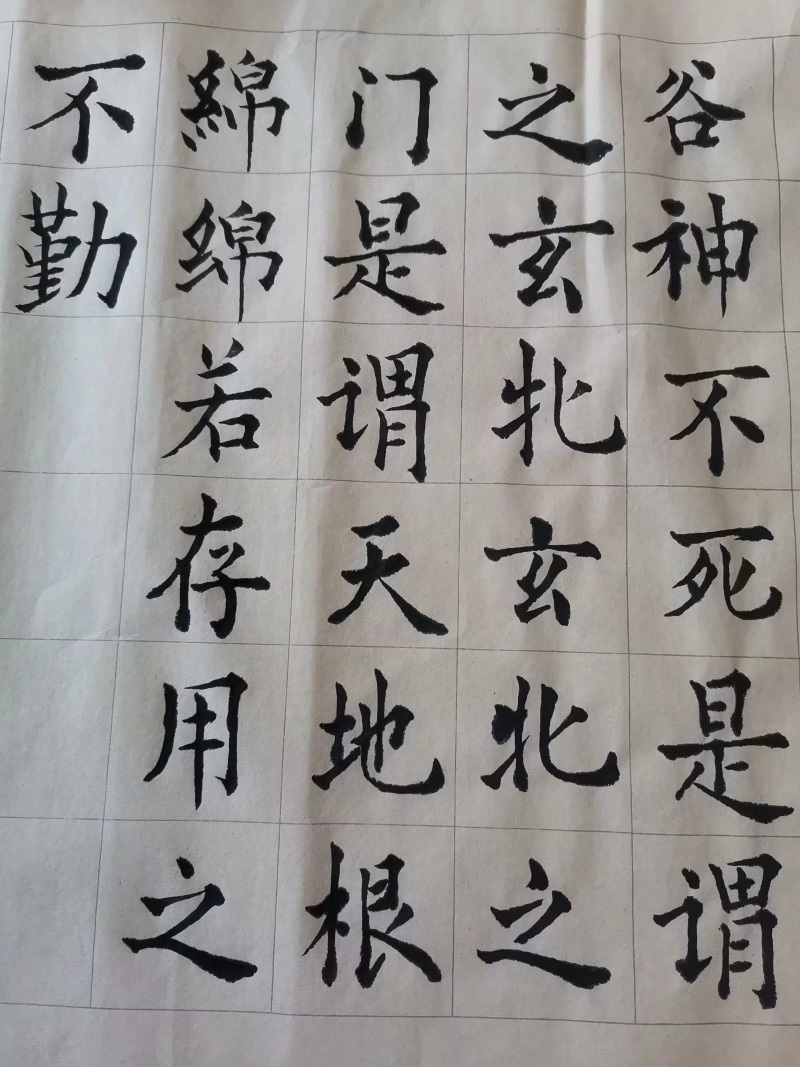 谷神不死是谓
之玄牝玄牝之
门是谓天地根
綿绵若存用之
不勤